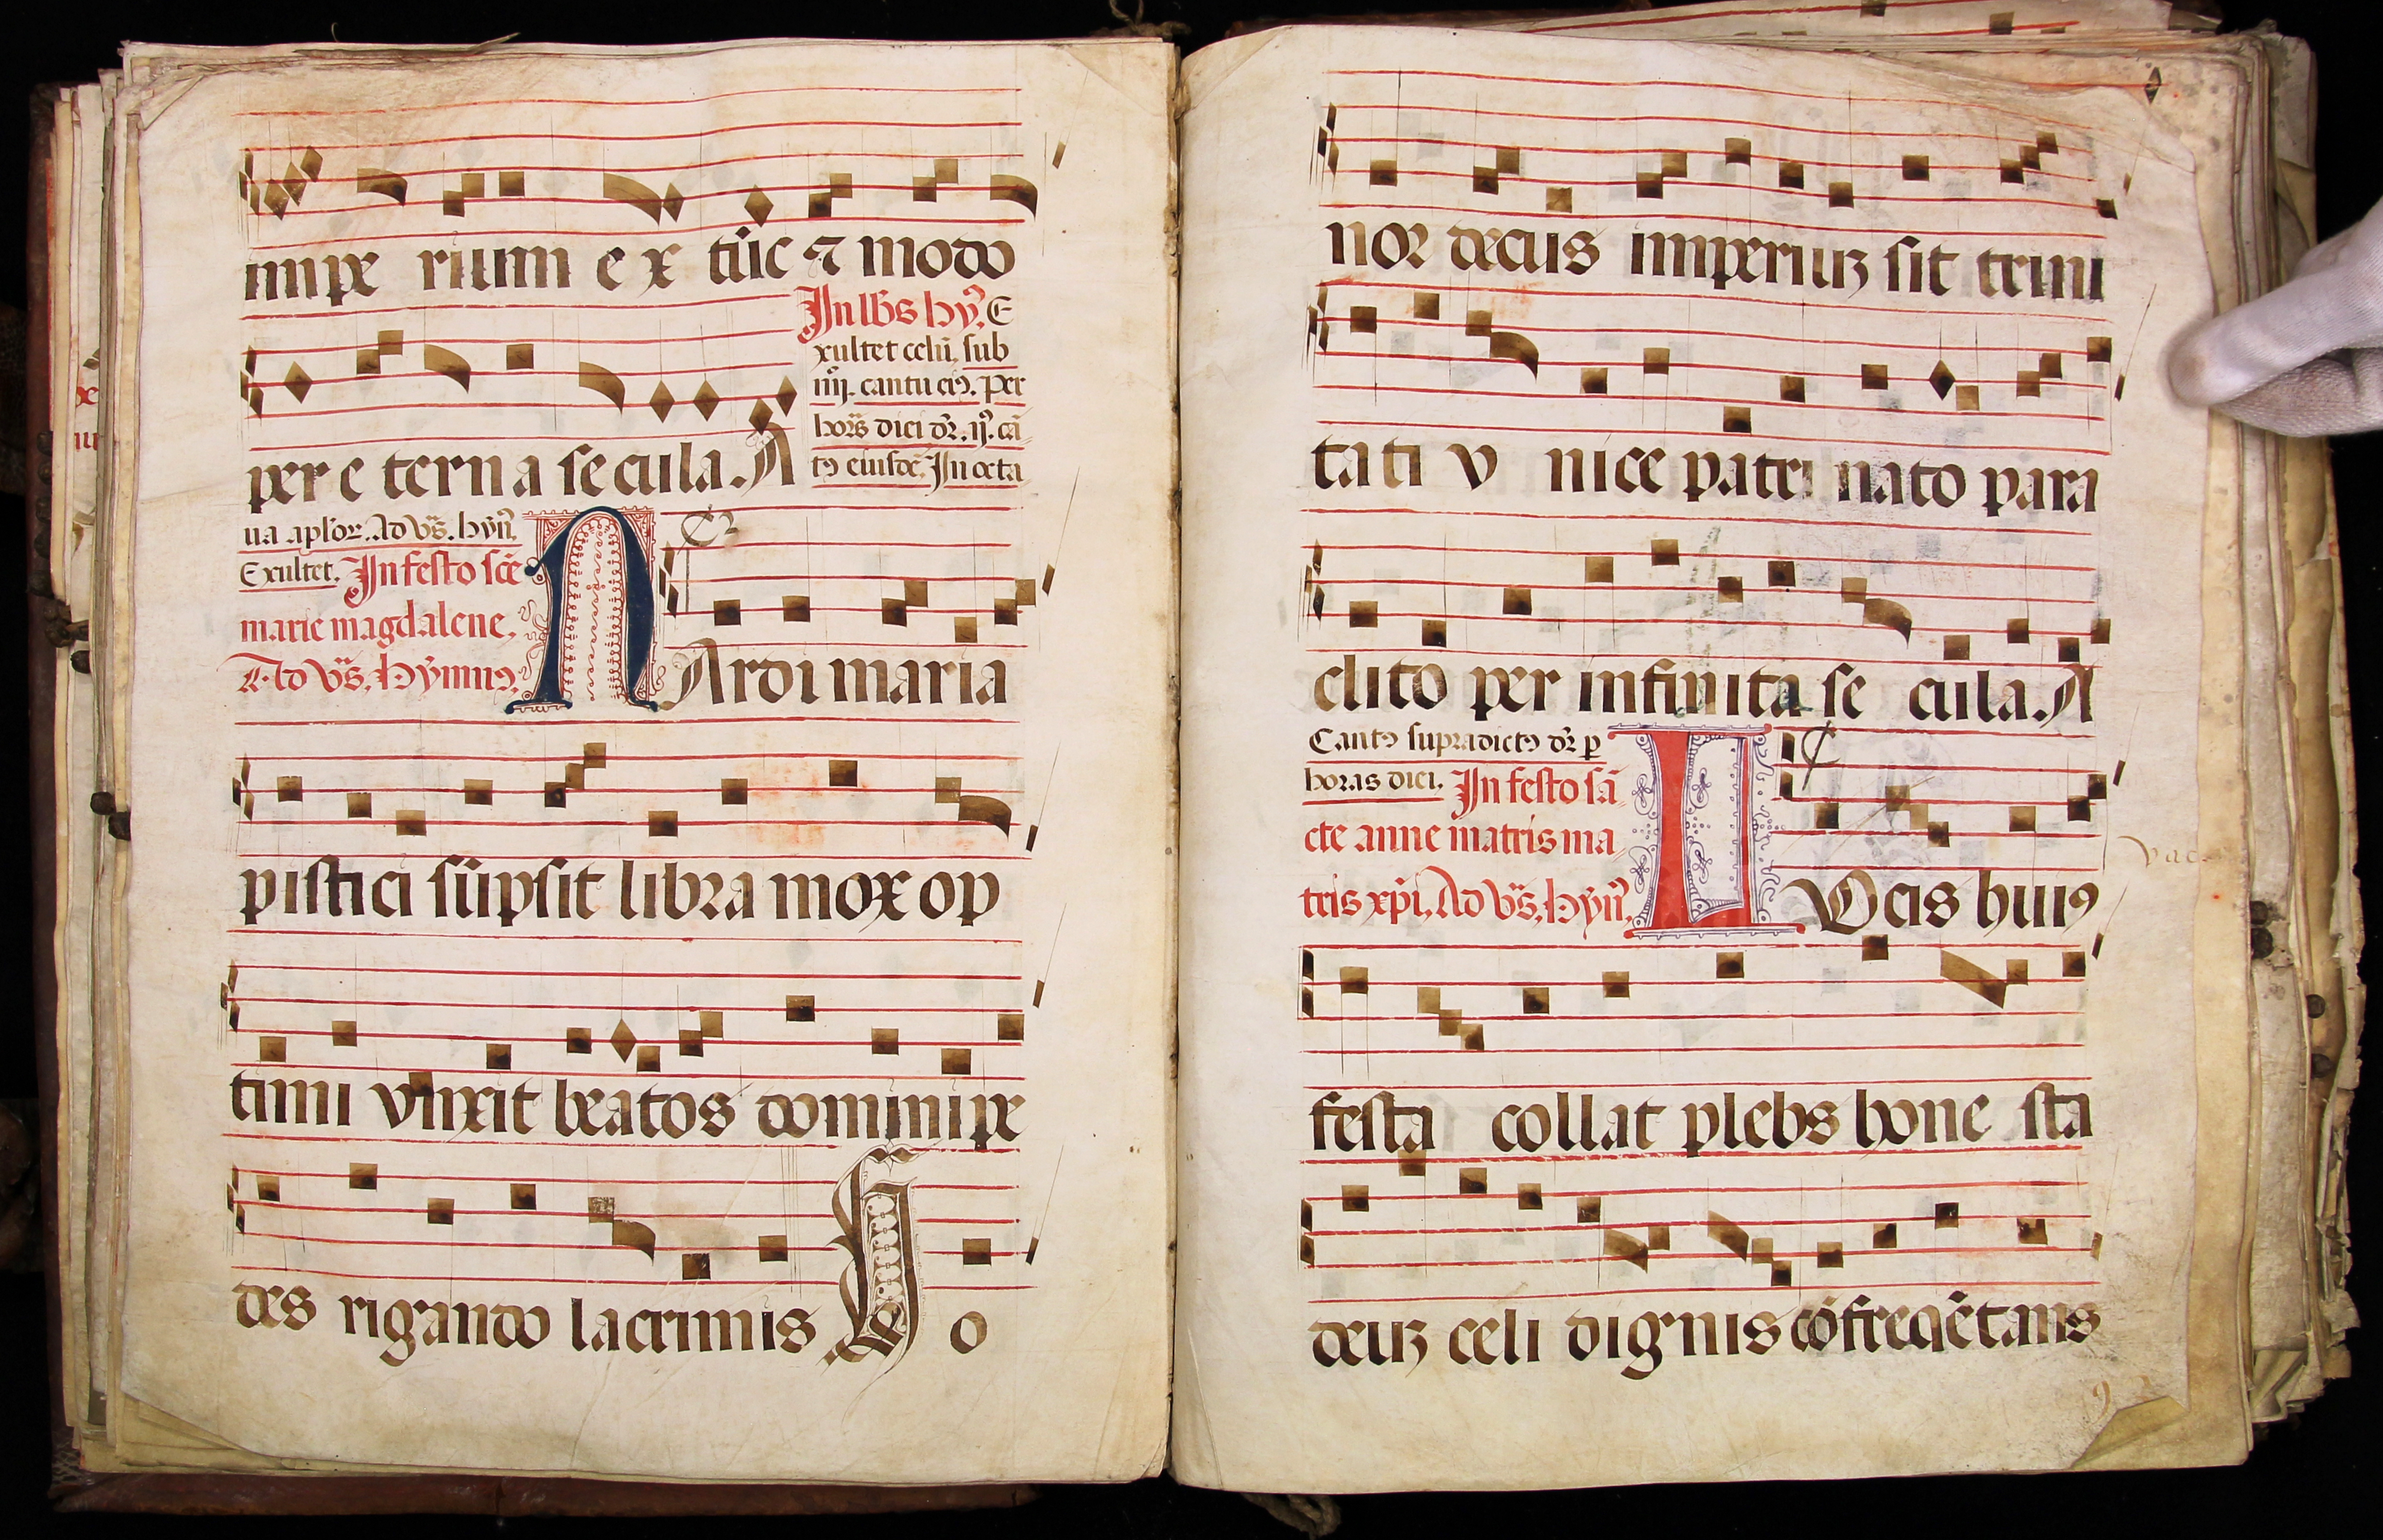 impe rium e x tūc ⁊ modo
In lb̄s hy̾. E
xultet celū, sub
iiij. cantu eiꝰ. per
per e terna secula. A
horas diei dr̄. ij. cā
tꝰ eiusdē. In octa
ua aplor̄. Ad vs̄. hyn̄.
Exultet. In festo scē
marie magdalene.
Ad vs̄. hymnꝰ.
NArdi maria
pistici sūpsit libra mox op
timi vnxit beatos domini pe
des rigando lacrimis Ho
nor decus imperiuꝫ sit trini
tati v nice patri nato para
clito per infinita se cula. A
Cantꝰ supradictꝰ dr̄ ꝑ
horas diei. In festo sā
cte anne matris ma
tris xp̄i. Ad vs̄. hyn̄.
LOcis huiꝰ
festa collat plebs hone sta
deuꝫ celi dignis cōfreq̄ētans